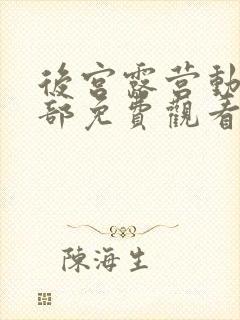 後宮露营動
部免費觀看
陳海生